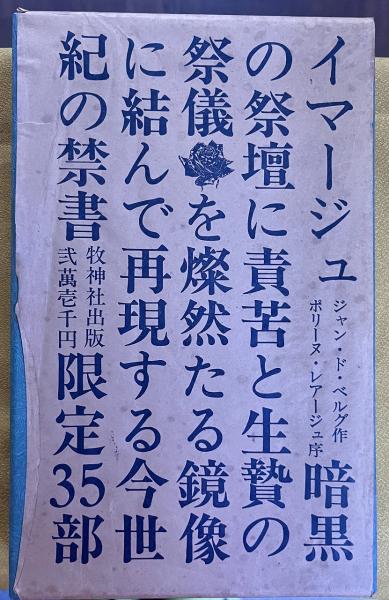 イマージュ
ジャン・ド・ベルグ作
ポリーヌ・レアージュ序
暗黒
の祭壇に責苦と生贄の
祭儀を燦然たる鏡像
に結んで再現する今世
紀の禁書
牧神社出版
弐萬壱千円
限定35部